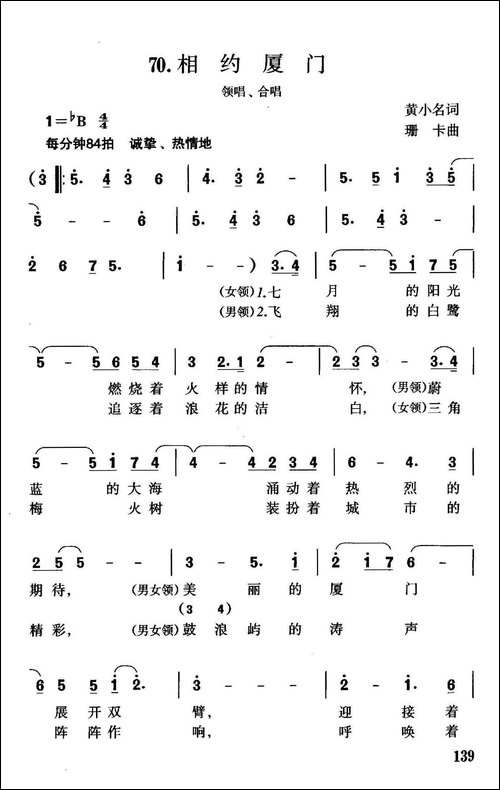 70.相约厦门
领唱、合唱
1=♭B 4/4
黄小名词
每分钟84拍 诚挚、热情地
珊卡曲
(3 ‖: 5. 4 3 6 | 4. 3 2 - | 5. 5 1 3 5
5 - - 6 | 5. 4 3 6 | 4 3 2 0 |
2 6 7 5. | 1 - - ) 3. 4 | 5 - 5 1 7 5
(女领)1.七 月 的 阳光
(男领)2.飞 翔 的 白鹭
5 - 5 6 5 4 | 3 2. 1 2 - | 2 3 3 - 3. 4
燃烧着 火样的情 怀,(男领)蔚
追逐着 浪花的洁 白,(女领)三角
5 - 5 1 7 4 | 4 - 4 2 3 4 | 6 - 4. 3
蓝 的大海 涌动着 热 烈的
梅 火树 装扮着 城 市的
2 5 5 - - | 3 - 5. 1 | 2 2 1 6 -
期待, (男女领)美 丽的 厦 门
(3 4)
精彩, (男女领)鼓浪屿的 涛 声
6 5 5 1 2. | 3 - - - | 2 - 1. 2
展开双 臂, 迎 接着
阵阵作 响, 呼 唤着
139